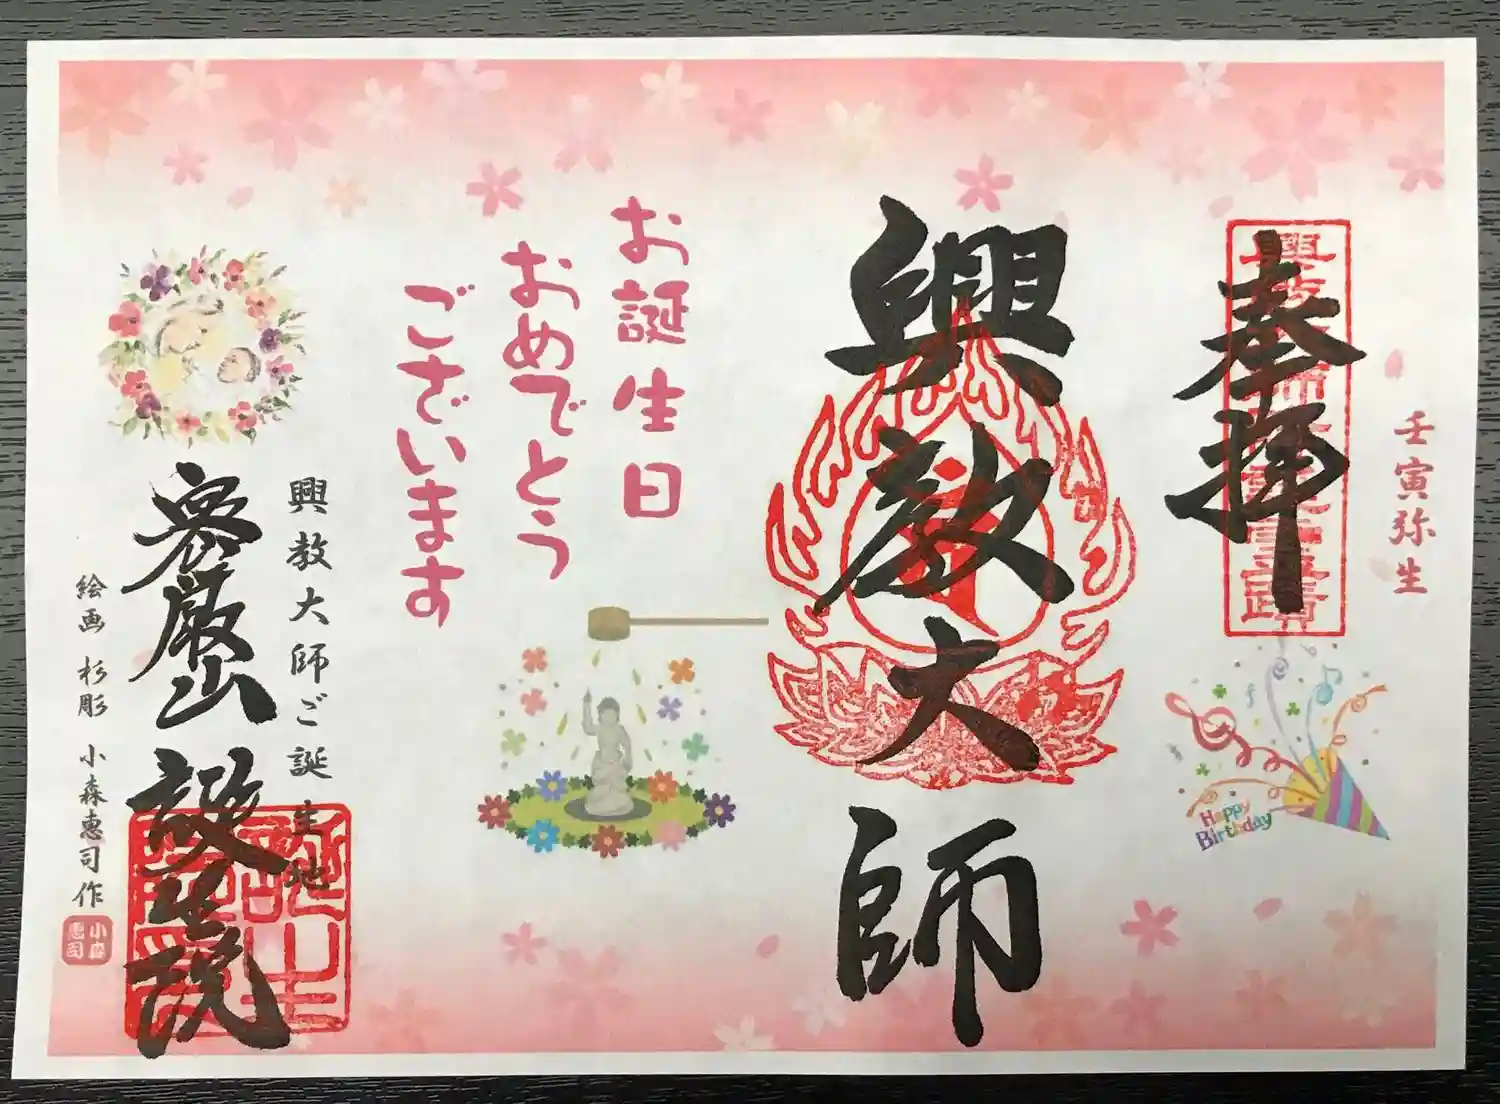 奉拝
壬寅弥生
興教大師
お誕生日
おめでとう
ございます
興教大師ご誕生地
密厳山 誕生院
絵画 杉彫 小森恵司作
小森
恵司
Happy
Birthday